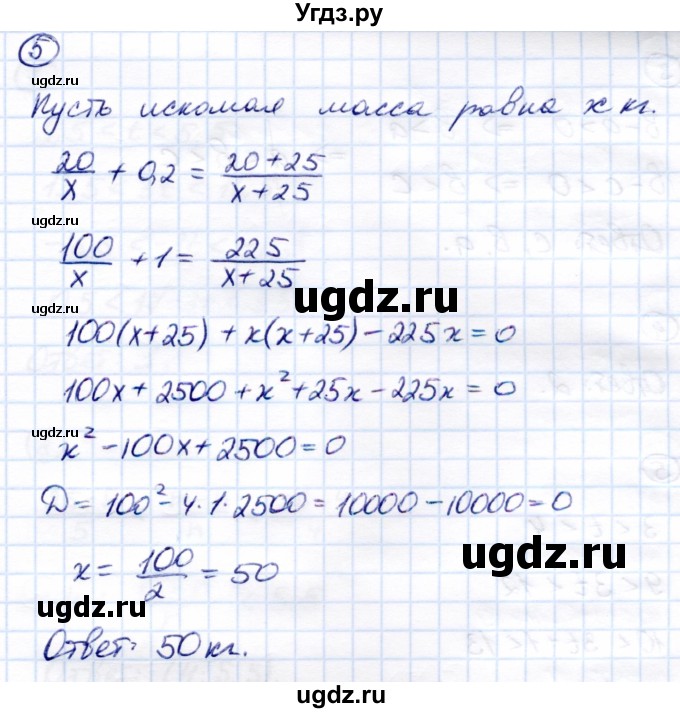 Угдз.ру
5
ugdz.ru
Пусть искомая масса равна x кг.
ugdz.ru
20/x + 0,2 = (20+25)/(x+25)
ugdz.ru
100/x + 1 = 225/(x+25)
ugdz.ru
ugdz.ru
100(x+25) + x(x+25) - 225x = 0
100x + 2500 + x² + 25x - 225x = 0
ugdz.ru
x² - 100x + 2500 = 0
Д = 100² - 4·1·2500 = 10000 - 10000 = 0
ugdz.ru
x = 100/2 = 50
ugdz.ru
Ответ: 50 кг.
ugdz.ru